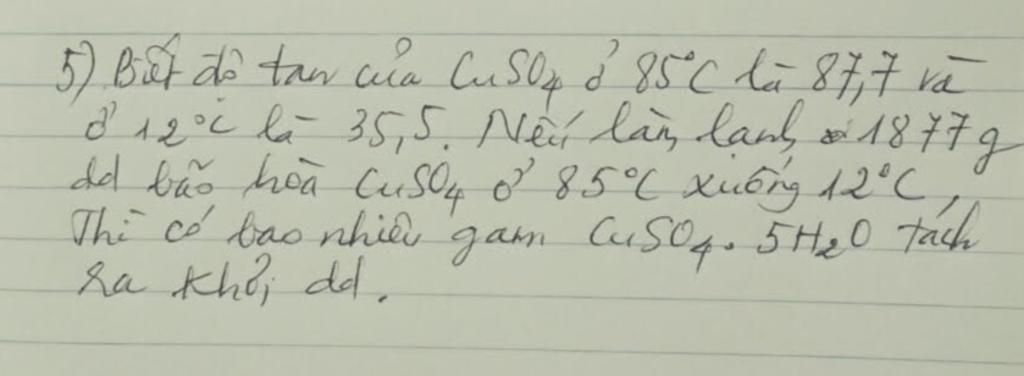 5) Biết độ tan của CuSO4 ở 85°C là 87,7 và
ở 12°C là 35,5. Nếu làm lạnh 1877g
dd bão hòa CuSO4 ở 85°C xuống 12°C,
Thì có bao nhiêu gam CuSO4. 5H2O tách
ra khỏi dd.